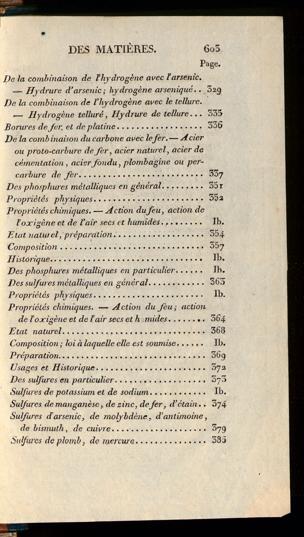 DES MATIÈRES. 603
Page.
De la combinaison de l'hydrogène avec l'arsenic.
— Hydrure d'arsenic; hydrogène arseniqué.. 329
De la combinaison de l'hydrogène avec le tellure.
— Hydrogène telluré, Hydrure de tellure... 335
Borures de fer, et de platine............... 336
De la combinaison du carbone avec le fer.— Acier
ou proto-carbure de fer, acier naturel, acier de
cémentation, acier fondu, plombagine ou per-
carbure de fer........................ 337
Des phosphures métalliques en général......... 351
Propriétés physiques..................... 352
Propriétés chimiques. — Action du feu, action de
l'oxigène et de l'air secs et humides........ Ib.
Etat naturel, préparation.................. 354
Composition .......................... 357
Historique............................ Ib.
Des phosphures métalliques en particulier...... Ib.
Des sulfures métalliques en général........... 363
Propriétés physiques..................... Ib.
Propriétés chimiques. — Action du feu; action
de l'oxigène et de l'air secs et h mides....... 364
Etat naturel........................... 368
Composition; loi à laquelle elle est soumise..... Ib.
Préparation........................... 369
Usages et Historique...................... 372
Des sulfures en particulier.................. 373
Sulfures de potassium et de sodium............ Ib.
Sulfures de manganèse, de zinc, de fer, d'étain.. 374
Sulfures d'arsenic, de molybdène, d'antimoine,
de bismuth, de cuivre.................... 379
Sulfures de plomb, de mercure.............. 385